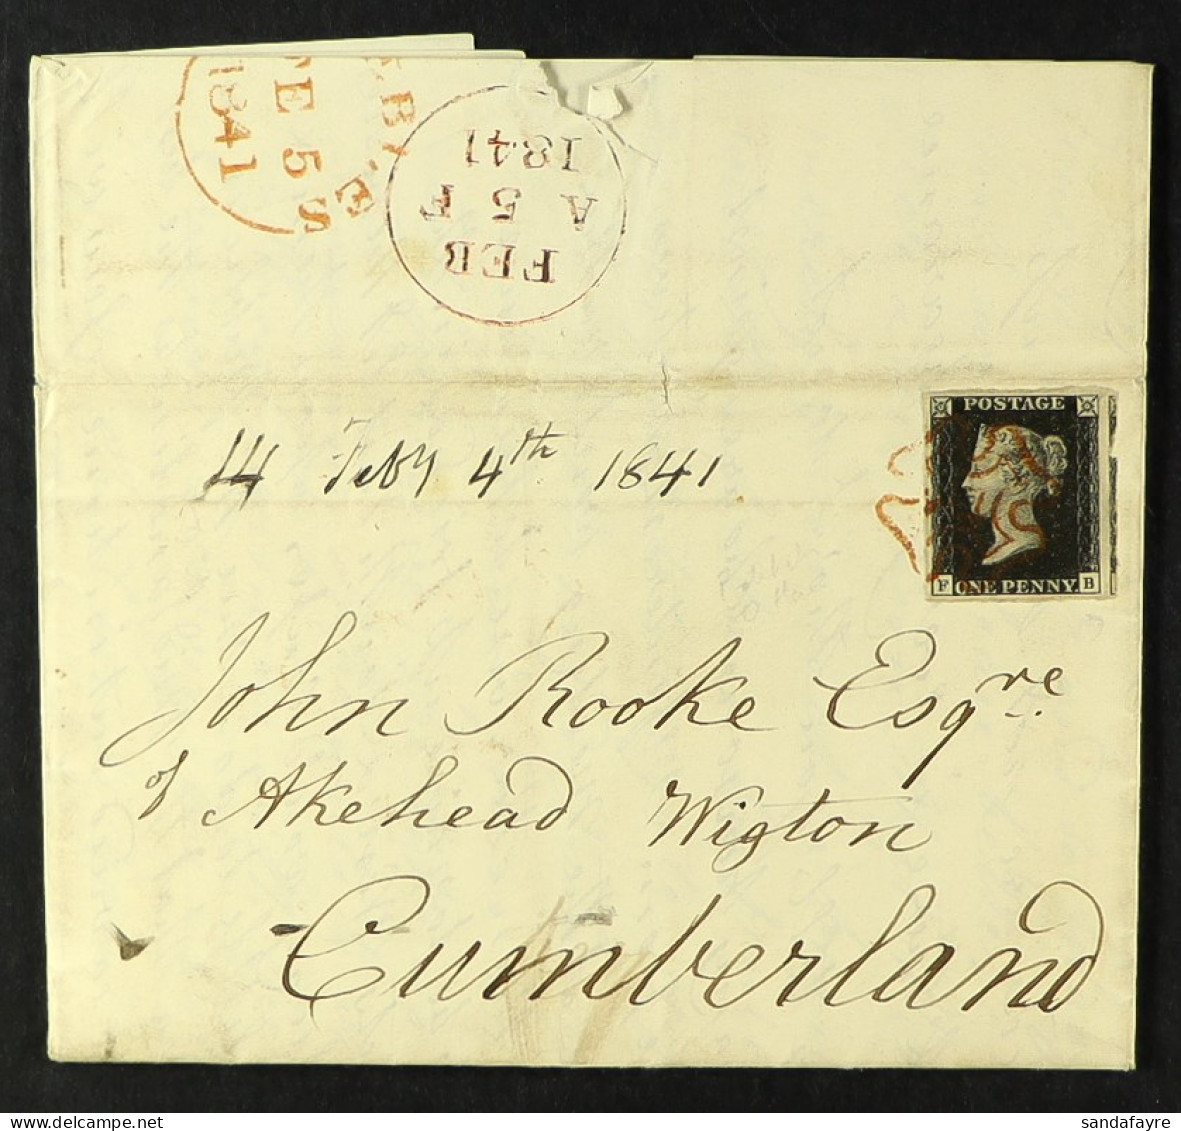 EBLES
FE 5
1841
1841
A 5 F
FEB
POSTAGE
14 Feby 4th 1841
F ONE PENNY B
John Rooke Esqre.
of Akehead Wigton
Cumberland
sandafayre